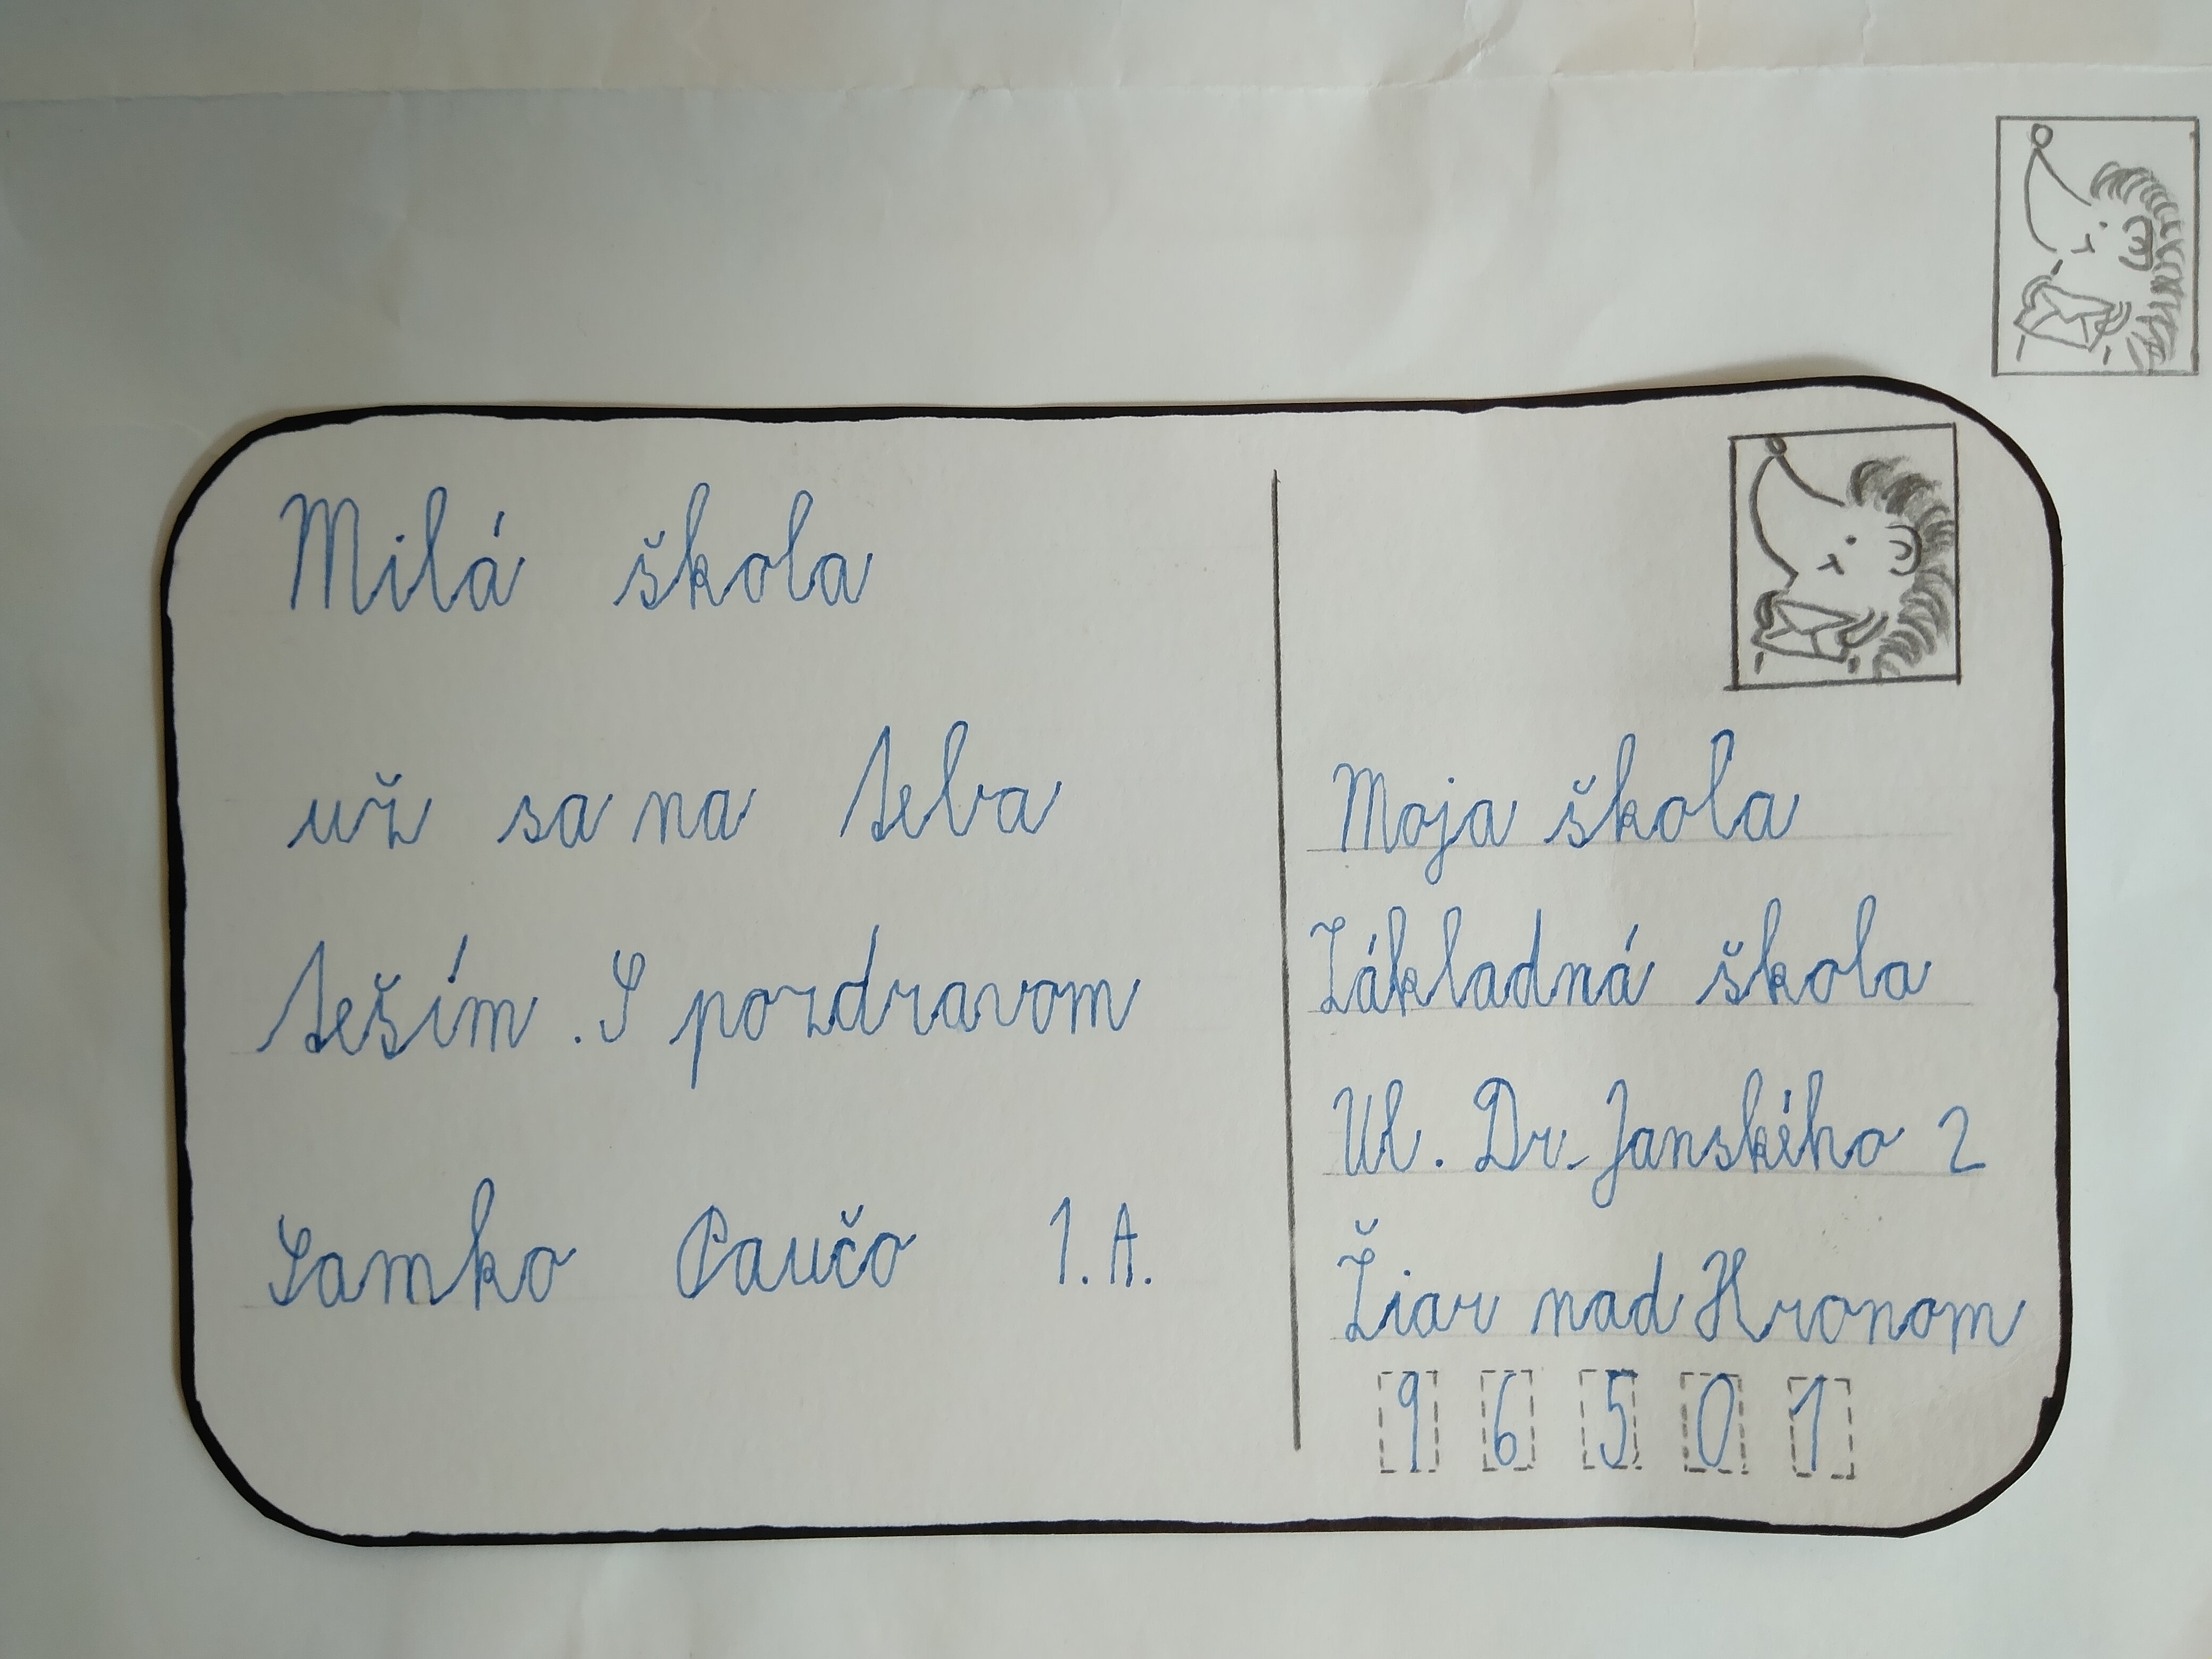 Milá škola
už sa na teba
teším. S pozdravom
Samko Paučo 1.A.
Moja škola
Základná škola
Ul. Dr. Janského 2
Žiar nad Hronom
96501